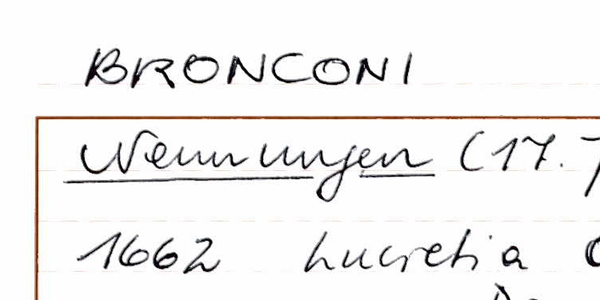 BRONCONI
Nennungen (17.
1662 Lucretia